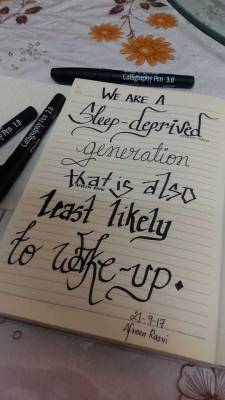 Calligraphy Pen 3.0
Calligraphy Pen 2.0
Pen 1.0
WE ARE A
Sleep-deprived
generation
that is also
Least likely
to wake-up.
21-9-17
Afreen Rasvi